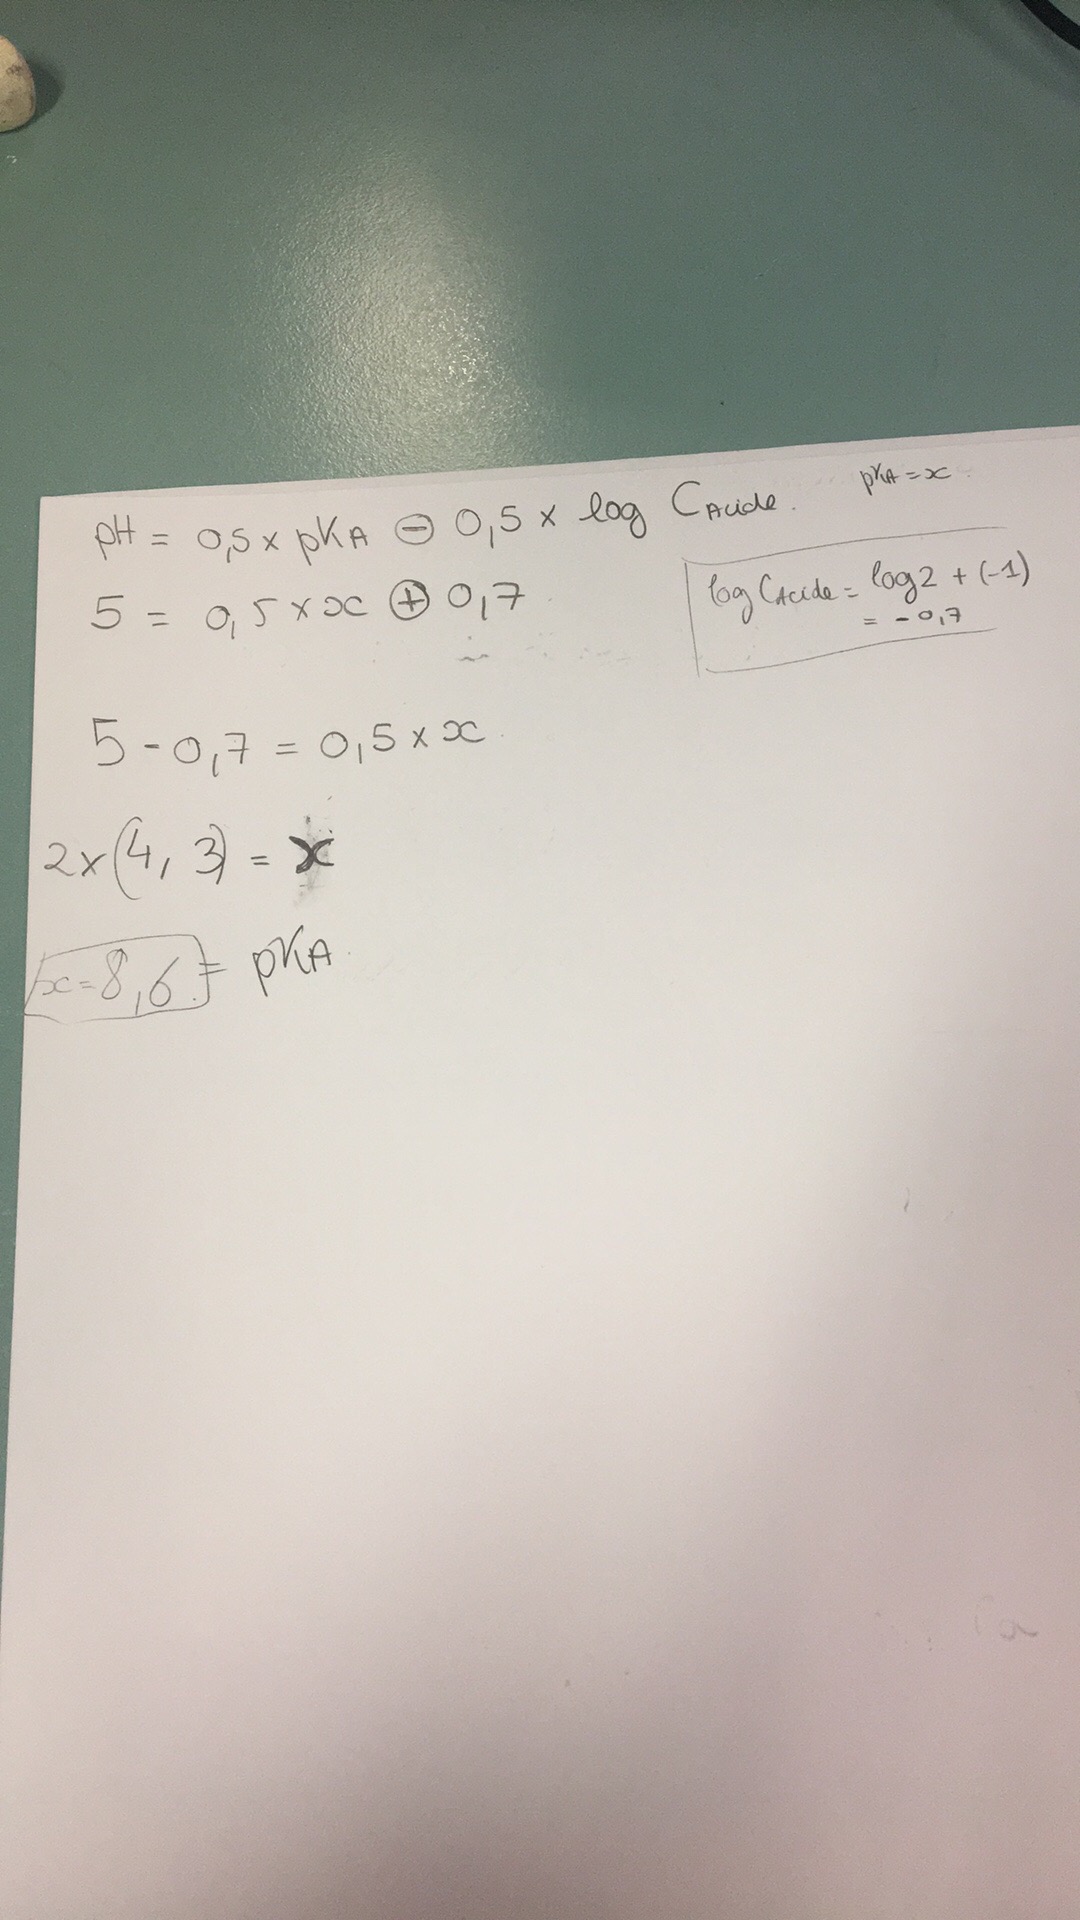 pKA = x
pH = 0,5 x pKA ⊖ 0,5 x log CAcide.
5 = 0,5 x x ⊕ 0,7
log CAcide = log2 + (-1)
= - 0,7
5 - 0,7 = 0,5 x x
2x(4,3) = x
x = 8,6 = pKA